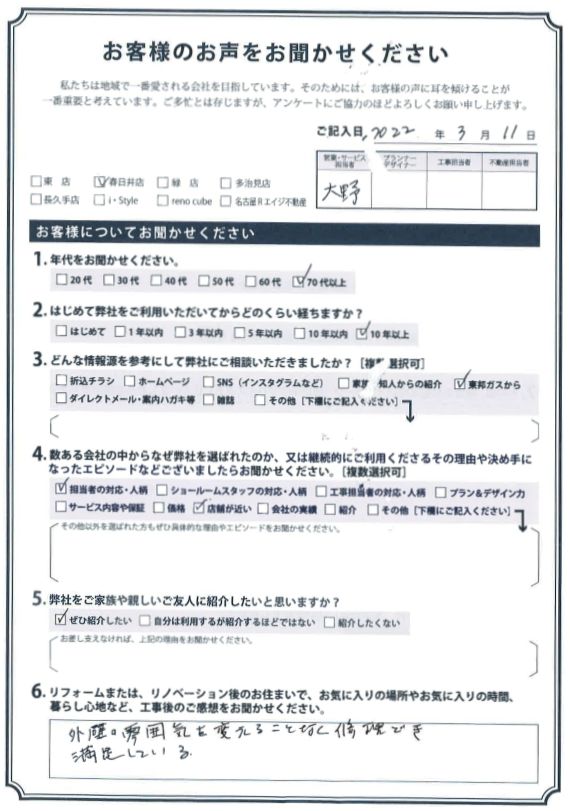 お客様のお声をお聞かせください
私たちは地域で一番愛される会社を目指しています。そのためには、お客様の声に耳を傾けることが
一番重要と考えています。ご多忙とは存じますが、アンケートにご協力のほどよろしくお願い申し上げます。
ご記入日, 2022 年 3 月 11 日
営業・サービス担当者 プランナーデザイナー 工事担当者 不動産担当者
大野
□東 店 ☑春日井店 □緑 店 □多治見店
□長久手店 □i・Style □reno cube □名古屋Rエイジ不動産
お客様についてお聞かせください
1. 年代をお聞かせください。
□20代 □30代 □40代 □50代 □60代 ☑70代以上
2. はじめて弊社をご利用いただいてからどのくらい経ちますか？
□はじめて □1年以内 □3年以内 □5年以内 □10年以内 ☑10年以上
3. どんな情報源を参考にして弊社にご相談いただきましたか？［複数選択可］
□折込チラシ □ホームページ □SNS（インスタグラムなど） □家族 知人からの紹介 ☑東邦ガスから
□ダイレクトメール・案内ハガキ等 □雑誌 □その他［下欄にご記入ください］
4. 数ある会社の中からなぜ弊社を選ばれたのか、又は継続的にご利用くださるその理由や決め手に
なったエピソードなどございましたらお聞かせください。［複数選択可］
☑担当者の対応・人柄 □ショールームスタッフの対応・人柄 □工事担当者の対応・人柄 □プラン&デザイン力
□サービス内容や保証 □価格 ☑店舗が近い □会社の実績 □紹介 □その他［下欄にご記入ください］
その他以外を選ばれた方もぜひ具体的な理由やエピソードをお聞かせください。
5. 弊社をご家族や親しいご友人に紹介したいと思いますか？
☑ぜひ紹介したい □自分は利用するが紹介するほどではない □紹介したくない
お差し支えなければ、上記の理由をお聞かせください。
6. リフォームまたは、リノベーション後のお住まいで、お気に入りの場所やお気に入りの時間、
暮らし心地など、工事後のご感想をお聞かせください。
外壁の雰囲気を変えることなく修理でき
満足している。